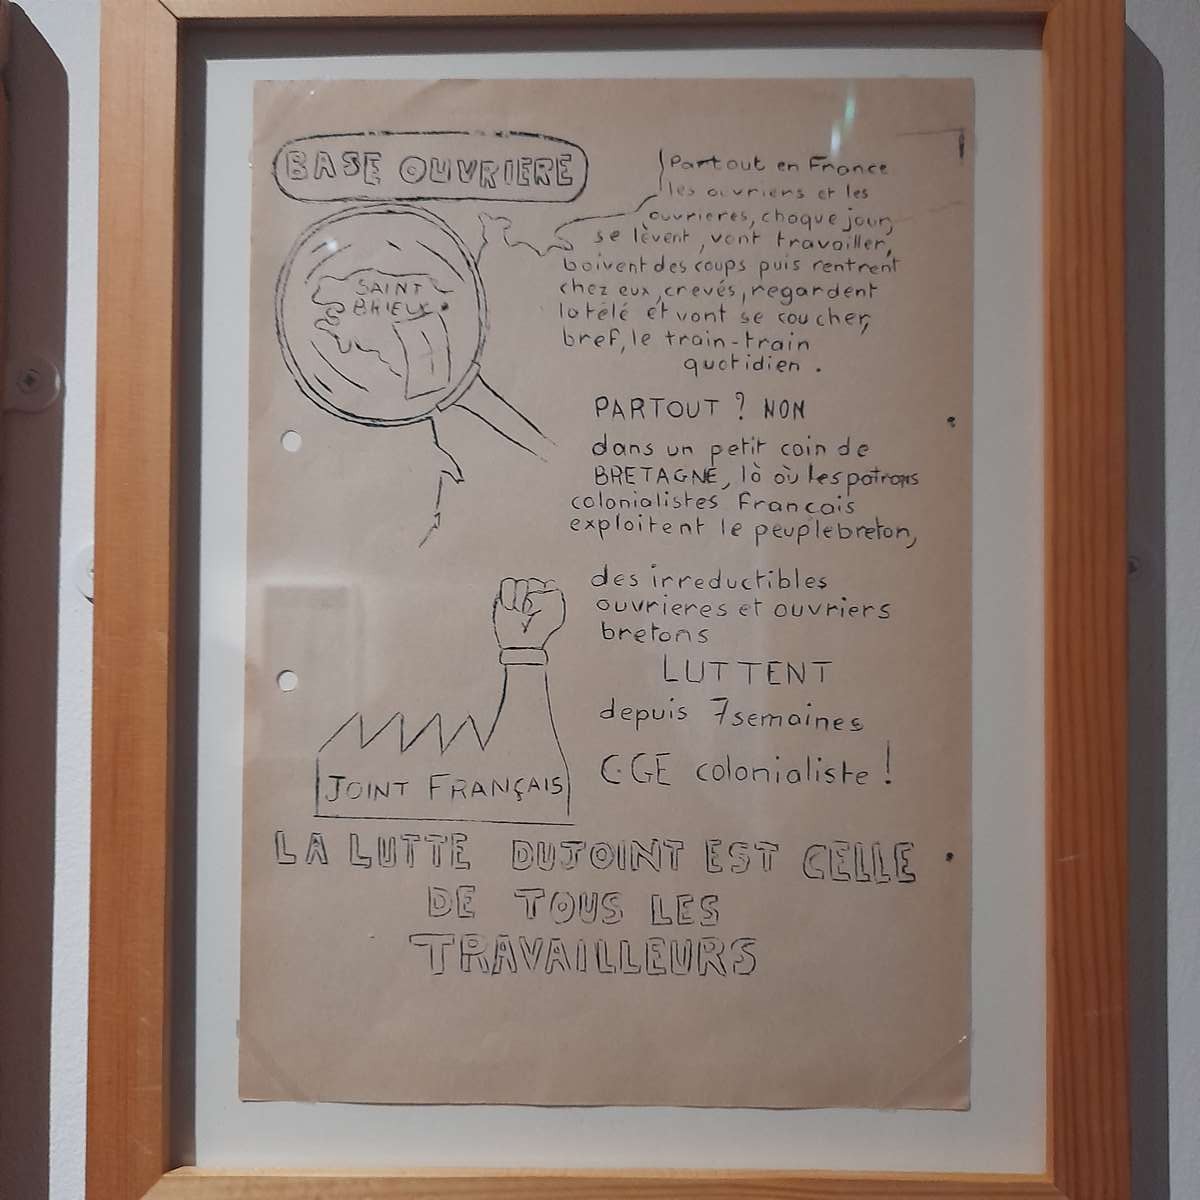 BASE OUVRIERE
SAINT
BRIEUC
Partout en France
les ouvriers et les
ouvrieres, chaque jour,
se lèvent, vont travailler,
boivent des coups puis rentrent
chez eux, crevés, regardent
la télé et vont se coucher,
bref, le train-train
quotidien.
PARTOUT ? NON
dans un petit coin de
BRETAGNE, là où les patrons
colonialistes Francais
exploitent le peuple breton,
des irreductibles
ouvrieres et ouvriers
bretons
LUTTENT
depuis 7 semaines
C.GE colonialiste !
JOINT FRANÇAIS
LA LUTTE DU JOINT EST CELLE
DE TOUS LES
TRAVAILLEURS